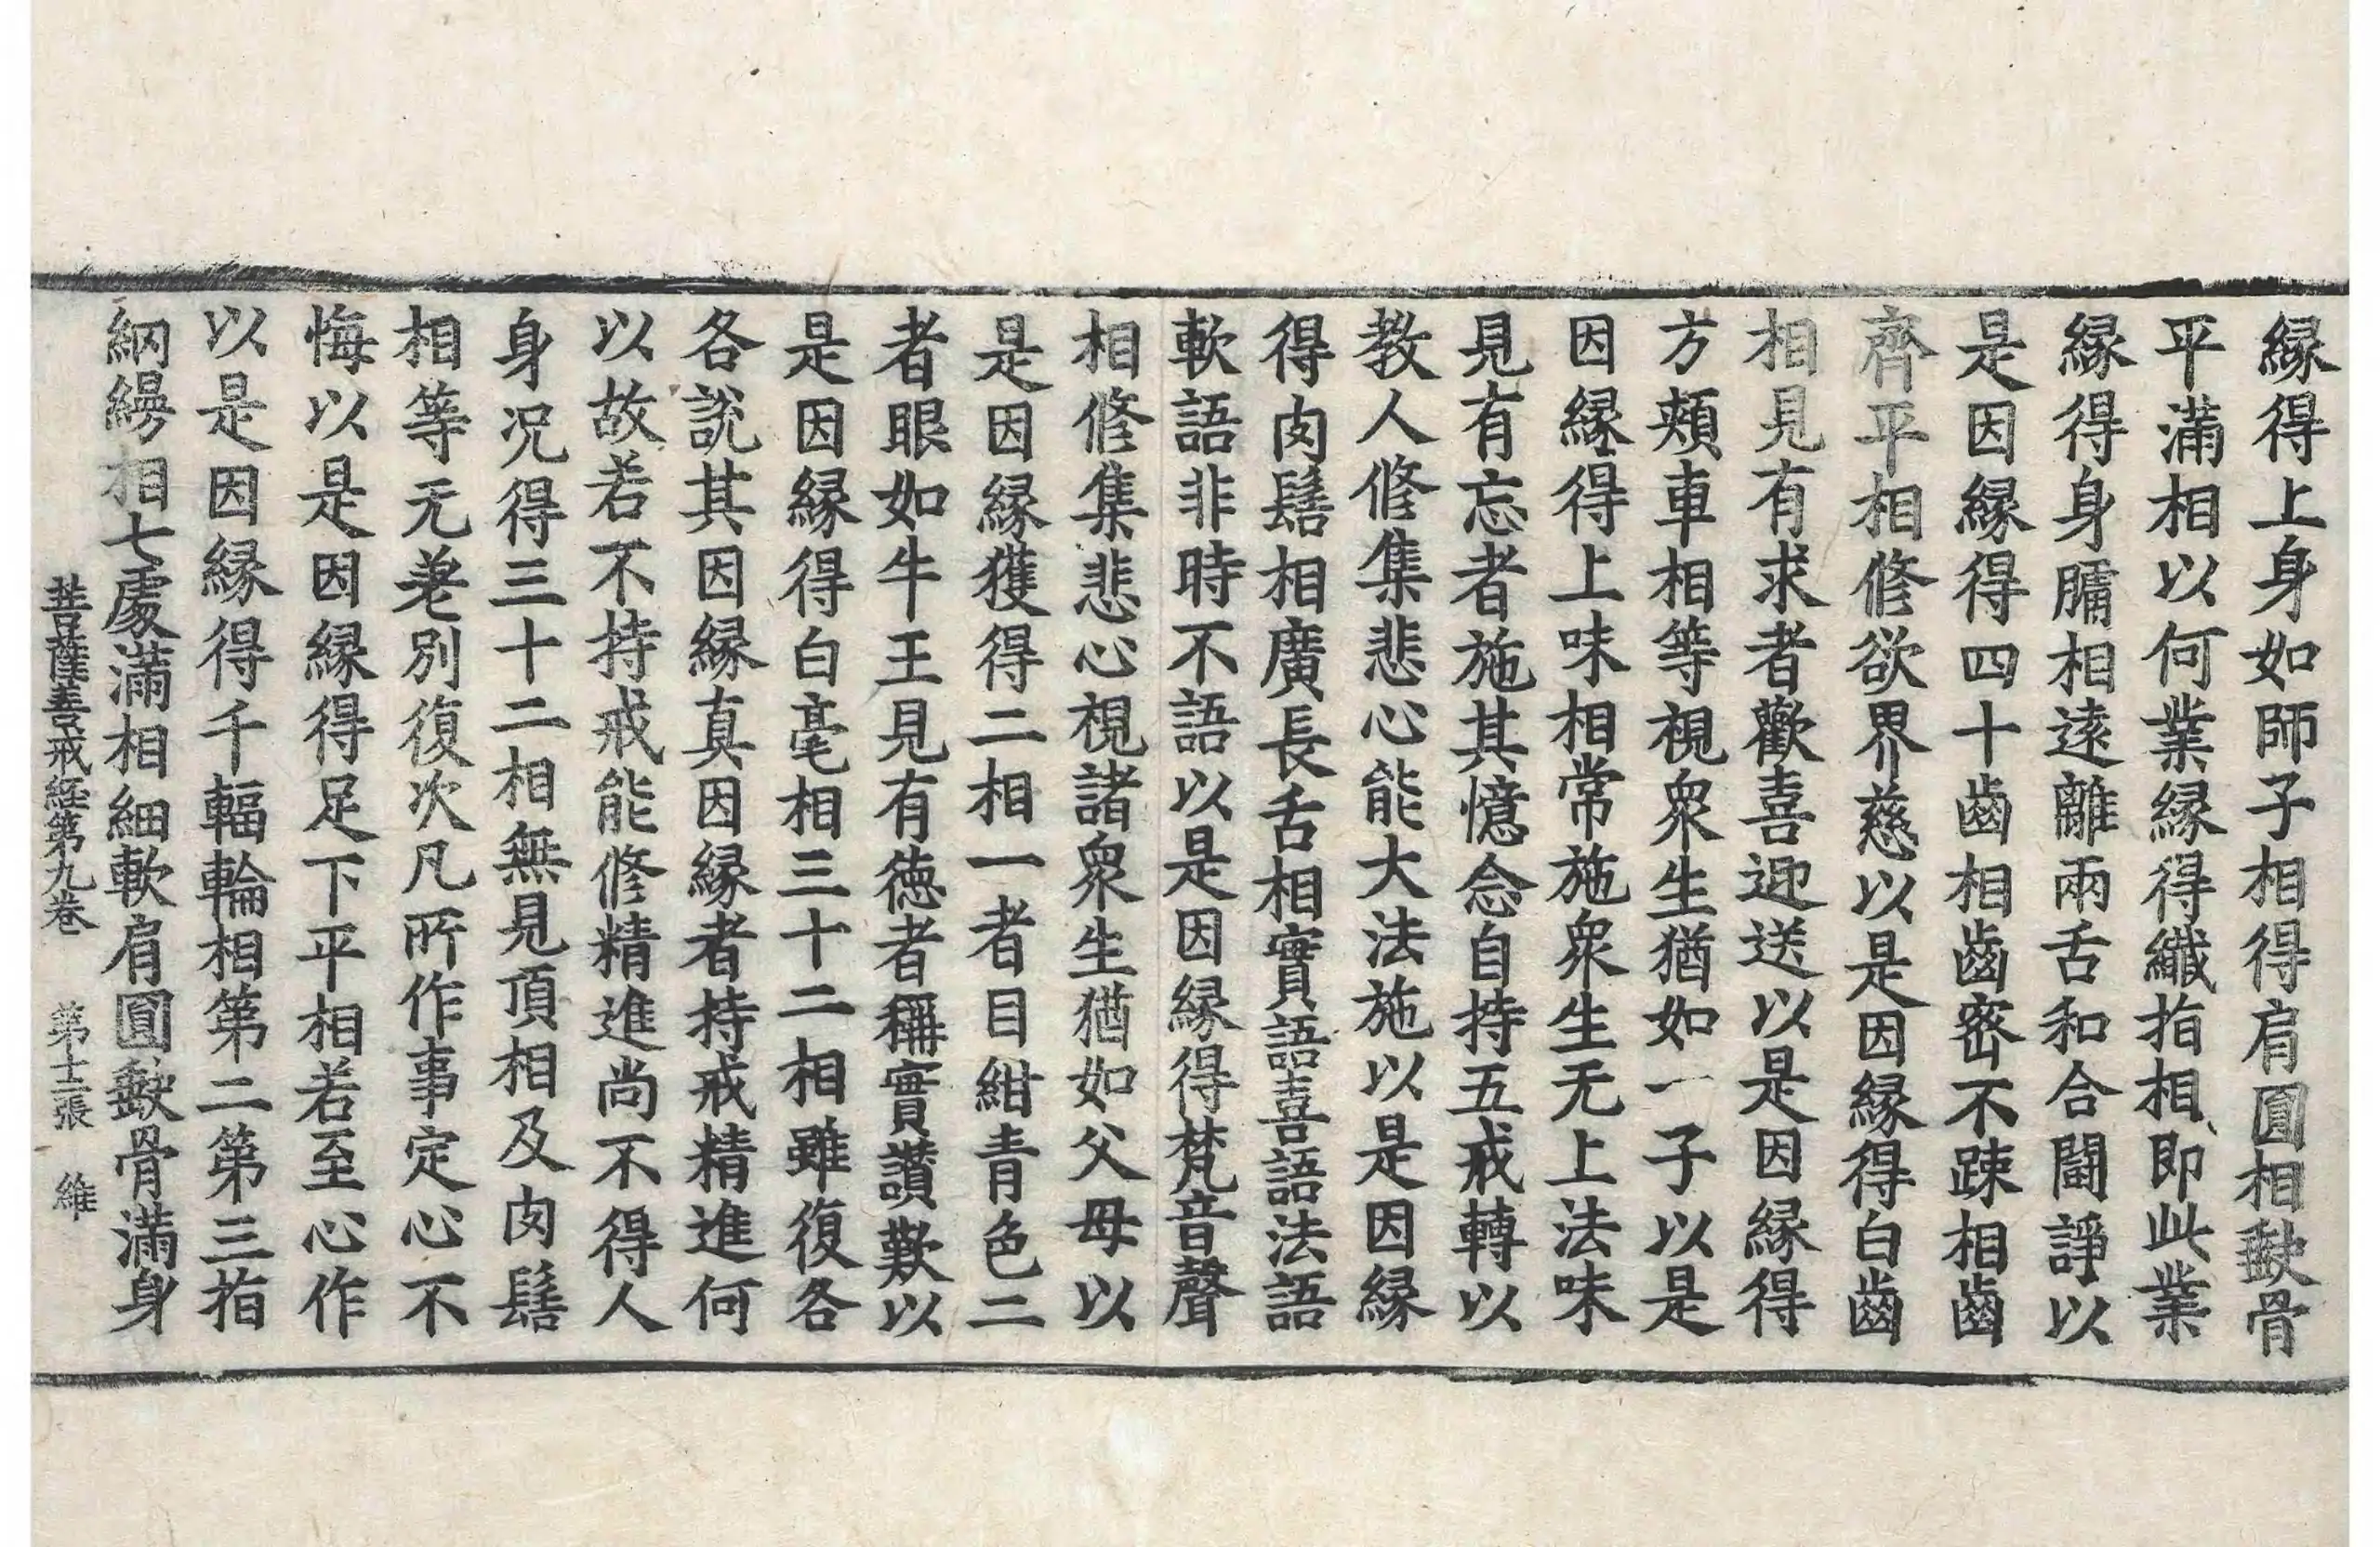 縁得上身如師子相得肩圓相𡙇骨
平滿相以何業縁得纎指相即此業
縁得身𦟛相逺離兩舌和合鬪諍以
是因縁得四十齒相齒密不踈相齒
齊平相修欲界慈以是因縁得白齒
相見有求者歡喜迎送以是因縁得
方頰車相等視衆生猶如一子以是
因縁得上味相常施衆生无上法味
見有忘者施其憶念自持五戒轉以
教人修集悲心能大法施以是因縁
得肉髻相廣長舌相實語喜語法語
軟語非時不語以是因縁得梵音聲
相修集悲心視諸衆生猶如父母以
是因縁獲得二相一者目紺青色二
者眼如牛王見有德者稱實讃歎以
是因縁得白毫相三十二相雖復各
各説其因縁真因縁者持戒精進何
以故若不持戒能修精進尚不得人
身况得三十二相無見頂相及肉髻
相等无差别復次凡所作事定心不
悔以是因縁得足下平相若至心作
以是因縁得千輻輪相第二第三指
網縵相七處滿相細軟肩圓𡙇骨滿身
菩薩善戒経第九卷 第十二張 維